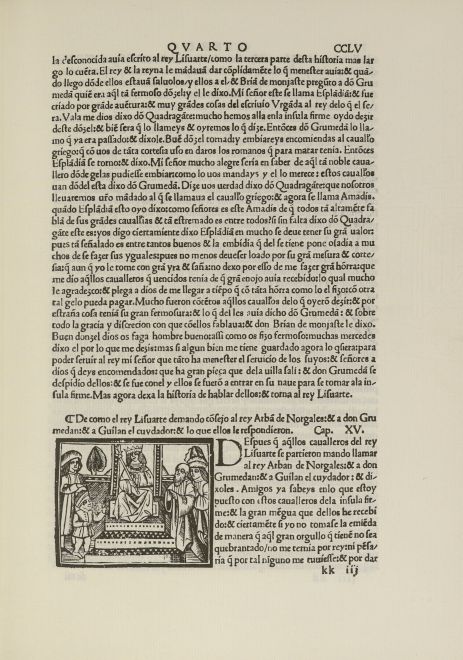 QVARTO CCLV
la desconocida auia escrito al rey Lisuarte/como la tercera parte desta historia mas lar
go lo cuẽta. El rey & la reyna le mãdauã dar cõplidamẽte lo q̃ menester auia: & quã
do llego dõde ellos estauã saluolos/y ellos a el. & Briã de monjaste pregũto a dõ Gru
medã quiẽ era aq̃l tã fermoso dõzel/y el le dixo. Mi señor este se llama Esplãdiã: & fue
criado por grãde auẽtura: & muy grãdes cosas del escriuio Vrgãda al rey delo q̃ el se
ra. Vala me dios dixo dõ Quadragãte: mucho hemos alla enla insula firme oydo dezir
deste dõzel: & biẽ sera q̃ lo llameys & oyremos lo q̃ dize. Entõces dõ Grumedã lo lla
mo q̃ ya era passado: & dixole. Buẽ dõzel tornad y embiareys encomiendas al cauallo
griego: q̃ cõ uos de tãta cortesia uso en daros los romanos q̃ para matar tenia. Entõces
Esplãdiã se torno: & dixo. Mi señor mucho alegre seria en saber de aq̃l tã noble caua/
llero dõde gelas pudiesse embiar: como lo uos mandays y el lo merece: estos caualłos
uan dõdel esta dixo dõ Grumedã. Dize uos uerdad dixo dõ Quadragãte: que nosotros
lleuaremos uro mãdado al q̃ se llamaua el cauallo griego: & agora se llama Amadis.
quãdo Esplãdiã esto oyo dixo: como señores es este Amadis de q̃ todos tã altamẽte fa
blã de sus grãdes cauallias & tã estremado es entre todos? si sin falta dixo dõ Quadra/
gãte este es: yos digo ciertamente dixo Esplãdiã en mucho se deue tener su grã ualor:
pues tã señalado es entre tantos buenos & la embidia q̃ del se tiene pone osadia a mu
chos de se fazer sus yguales: pues no menos deue ser loado por su grã mesura & corte/
sia: q̃ aun q̃ yo le tome con grã yra & saña: no dexo por esso de me fazer grã hõrra: que
me dio aq̃llos caualleros q̃ uencidos tenia de q̃ grã enojo auia recebido: lo qual mucho
le agradezco: & plega a dios de me llegar a tiẽpo q̃ cõ tãta hõrra como lo el fizo: cõ otra
tal gelo pueda pagar. Mucho fueron cõtẽtos aq̃llos cauallos delo q̃ oyerõ dezir: & por
estraña cosa tenia su gran fermosura: & lo q̃ del les auia dicho dõ Grumedã: & sobre
todo la gracia y discrecion con que cõellos fablaua: & don Brian de monjaste le dixo.
Buen donzel dios os faga hombre bueno: assi como os fizo fermoso: muchas mercedes
dixo el por lo que me dezis: mas si algun bien me tiene guardado agora lo q̃siera: para
poder seruir al rey mi señor que tãto ha menester el seruicio de los suyos: & señores a
dios q̃ deys encomendados: que ha gran pieça que dela uilla sali: & don Grumedã se
despidio dellos: & se fue conel y ellos se fuerõ a entrar en su naue para se tornar ala in/
sula firme. Mas agora dexa la historia de hablar dellos: & torna al rey Lisuarte.
¶ De como el rey Lisuarte demando cõsejo al rey Arbã de Norgales: & a don Gru
medan: & a Guilan el cuydador: & lo que ellos le respondieron. Cap. XV.
Despues q̃ aq̃llos caualleros del rey
Lisuarte se partieron mando llamar
al rey Arban de Norgales: & a don
Grumedan: & a Guilan el cuydador: & di/
xoles. Amigos ya sabeys enlo que estoy
puesto con estos caualleros dela insula fir
me: & la gran mẽgua que dellos he recebi
do: & ciertamẽte si yo no tomasse la emiẽda
de manera q̃ aq̃l gran orgullo q̃ tienẽ no sea
quebrantado/no me ternia por rey: ni pẽsa/
ria q̃ por tal ninguno me tuuiesse: & por dar
kk iij